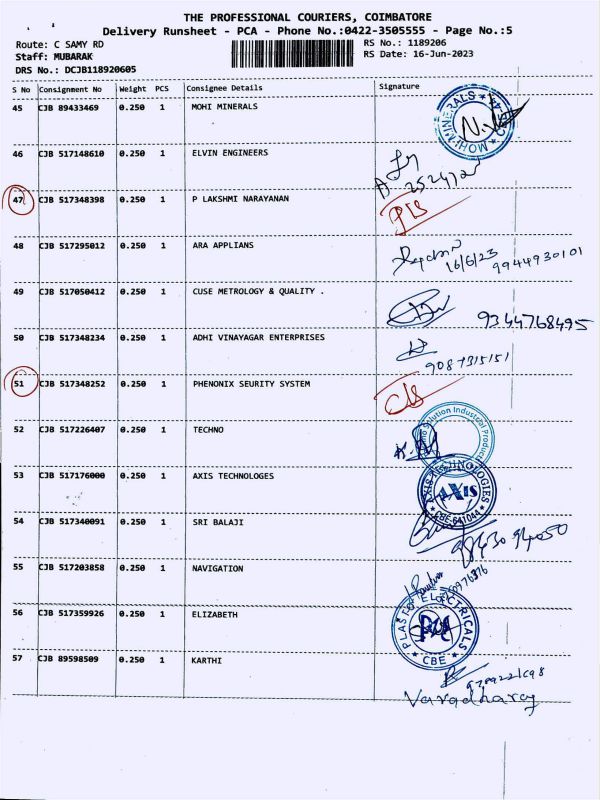 THE PROFESSIONAL COURIERS, COIMBATORE
Delivery Runsheet - PCA - Phone No.:0422-3505555 - Page No.:5
Route: C SAMY RD
RS No.: 1189206
Staff: MUBARAK
RS Date: 16-Jun-2023
DRS No.: DCJB118920605
S No Consignment No Weight PCS Consignee Details Signature
45 CJB 89433469 0.250 1 MOHI MINERALS
MOHI-MINERALS
46 CJB 517148610 0.250 1 ELVIN ENGINEERS
47 CJB 517348398 0.250 1 P LAKSHMI NARAYANAN
48 CJB 517295012 0.250 1 ARA APPLIANS
16/6/23 9944930101
49 CJB 517050412 0.250 1 CUSE METROLOGY & QUALITY .
9344768495
50 CJB 517348234 0.250 1 ADHI VINAYAGAR ENTERPRISES
9087315151
51 CJB 517348252 0.250 1 PHENONIX SEURITY SYSTEM
52 CJB 517226407 0.250 1 TECHNO
Solution Industrial Products
53 CJB 517176000 0.250 1 AXIS TECHNOLOGES
AXIS TECHNOLOGIES
AXIS
CBE-641044
54 CJB 517340091 0.250 1 SRI BALAJI
55 CJB 517203858 0.250 1 NAVIGATION
56 CJB 517359926 0.250 1 ELIZABETH
PLASTO ELECTRICALS
CBE
57 CJB 89598509 0.250 1 KARTHI
Varadharaj